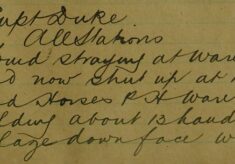 upt Duke.
All Stations
ound straying at War
d now shut up at
d Horses P H War
lding about 13 hand
laze down face w